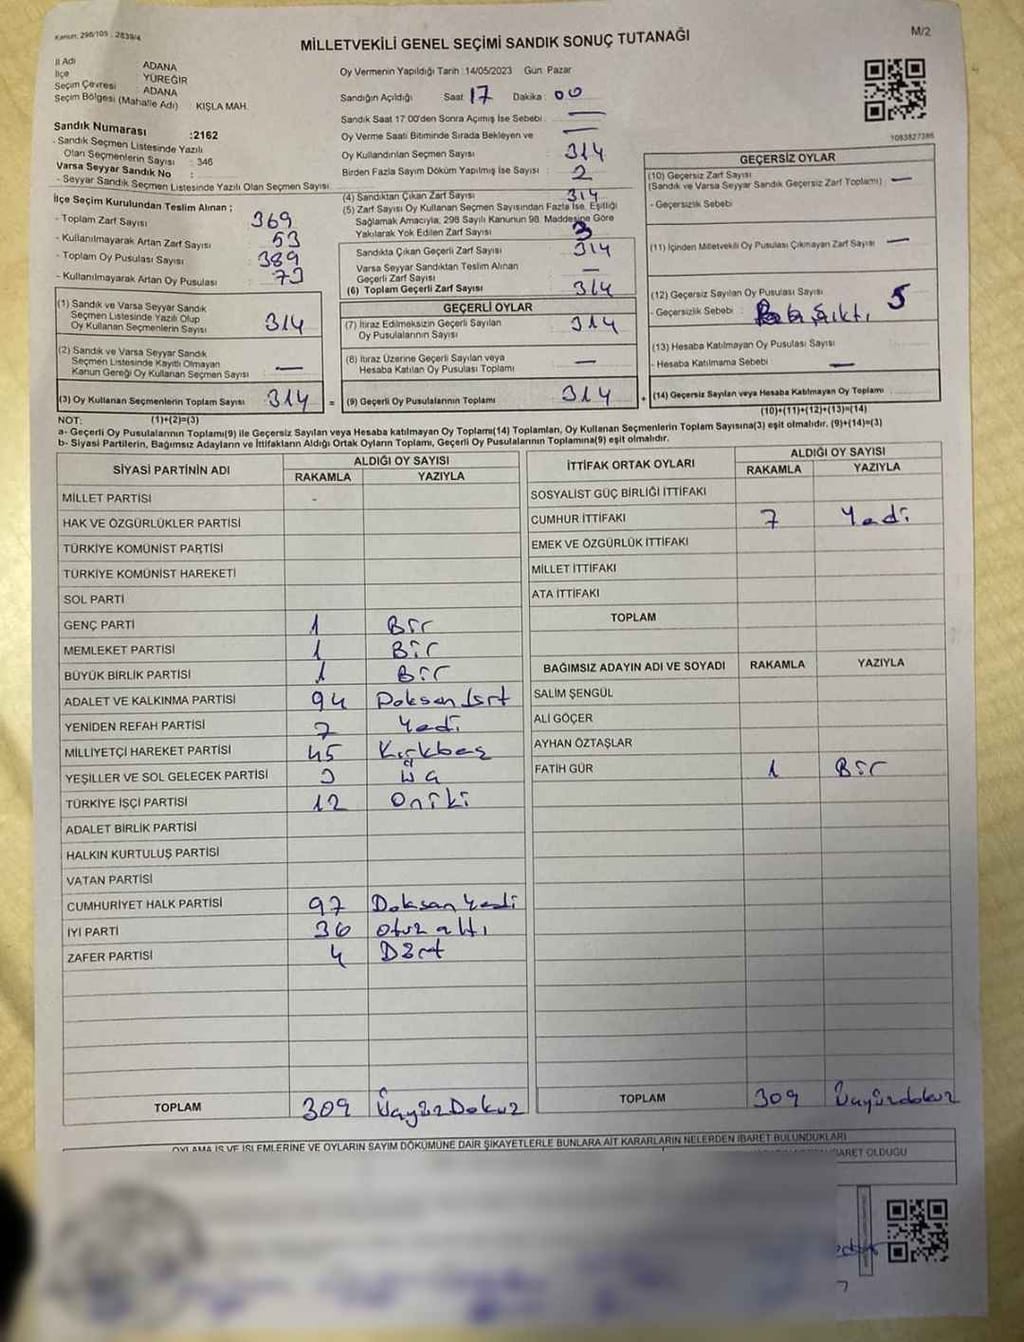 Kanun: 298/105 : 2839/4
MİLLETVEKİLİ GENEL SEÇİMİ SANDIK SONUÇ TUTANAĞI
M/2
İl Adı ADANA
İlçe YÜREĞİR
Seçim Çevresi ADANA
Seçim Bölgesi (Mahalle Adı) KIŞLA MAH.
Sandık Numarası :2162
- Sandık Seçmen Listesinde Yazılı
Olan Seçmenlerin Sayısı : 346
Varsa Seyyar Sandık No :
- Seyyar Sandık Seçmen Listesinde Yazılı Olan Seçmen Sayısı
İlçe Seçim Kurulundan Teslim Alınan ;
- Toplam Zarf Sayısı 369
- Kullanılmayarak Artan Zarf Sayısı 53
- Toplam Oy Pusulası Sayısı 389
- Kullanılmayarak Artan Oy Pusulası 73
(1) Sandık ve Varsa Seyyar Sandık
Seçmen Listesinde Yazılı Olup
Oy Kullanan Seçmenlerin Sayısı 314
(2) Sandık ve Varsa Seyyar Sandık
Seçmen Listesinde Kayıtlı Olmayan
Kanun Gereği Oy Kullanan Seçmen Sayısı —
(3) Oy Kullanan Seçmenlerin Toplam Sayısı 314 =
Oy Vermenin Yapıldığı Tarih :14/05/2023 Gün: Pazar
Sandığın Açıldığı Saat 17 Dakika : 00
Sandık Saat 17:00'den Sonra Açımış İse Sebebi : —
Oy Verme Saati Bitiminde Sırada Bekleyen ve —
Oy Kullandırılan Seçmen Sayısı 314
Birden Fazla Sayım Döküm Yapılmış İse Sayısı : 2
(4) Sandıktan Çıkan Zarf Sayısı 314
(5) Zarf Sayısı Oy Kullanan Seçmen Sayısından Fazla İse, Eşitliği
Sağlamak Amacıyla, 298 Sayılı Kanunun 98. Maddesine Göre
Yakılarak Yok Edilen Zarf Sayısı
Sandıkta Çıkan Geçerli Zarf Sayısı 314
Varsa Seyyar Sandıktan Teslim Alınan
Geçerli Zarf Sayısı —
(6) Toplam Geçerli Zarf Sayısı 314
GEÇERLİ OYLAR
(7) İtiraz Edilmeksizin Geçerli Sayılan
Oy Pusulalarının Sayısı 314
(8) İtiraz Üzerine Geçerli Sayılan veya
Hesaba Katılan Oy Pusulası Toplamı —
(9) Geçerli Oy Pusulalarının Toplamı 314 +
1083827386
GEÇERSİZ OYLAR
(10) Geçersiz Zarf Sayısı
(Sandık ve Varsa Seyyar Sandık Geçersiz Zarf Toplamı) —
- Geçersizlik Sebebi
(11) İçinden Milletvekili Oy Pusulası Çıkmayan Zarf Sayısı —
(12) Geçersiz Sayılan Oy Pusulası Sayısı 5
- Geçersizlik Sebebi :
(13) Hesaba Katılmayan Oy Pusulası Sayısı
- Hesaba Katılmama Sebebi —
(14) Geçersiz Sayılan veya Hesaba Katılmayan Oy Toplamı
NOT: (1)+(2)=(3) (10)+(11)+(12)+(13)=(14)
a- Geçerli Oy Pusulalarının Toplamı(9) ile Geçersiz Sayılan veya Hesaba katılmayan Oy Toplamı(14) Toplamları, Oy Kullanan Seçmenlerin Toplam Sayısına(3) eşit olmalıdır. (9)+(14)=(3)
b- Siyasi Partilerin, Bağımsız Adayların ve İttifakların Aldığı Ortak Oyların Toplamı, Geçerli Oy Pusulalarının Toplamına(9) eşit olmalıdır.
SİYASİ PARTİNİN ADI ALDIĞI OY SAYISI
RAKAMLA YAZIYLA
MİLLET PARTİSİ -
HAK VE ÖZGÜRLÜKLER PARTİSİ
TÜRKİYE KOMÜNİST PARTİSİ
TÜRKİYE KOMÜNİST HAREKETİ
SOL PARTİ
GENÇ PARTİ 1 Bir
MEMLEKET PARTİSİ 1 Bir
BÜYÜK BİRLİK PARTİSİ 1 Bir
ADALET VE KALKINMA PARTİSİ 94 Doksan
YENİDEN REFAH PARTİSİ 7 Yedi
MİLLİYETÇİ HAREKET PARTİSİ 45 Kırkbeş
YEŞİLLER VE SOL GELECEK PARTİSİ 3 üç
TÜRKİYE İŞÇİ PARTİSİ 12 Oniki
ADALET BİRLİK PARTİSİ
HALKIN KURTULUŞ PARTİSİ
VATAN PARTİSİ
CUMHURİYET HALK PARTİSİ 97 Doksan Yedi
İYİ PARTİ 36 otuz altı
ZAFER PARTİSİ 4 Dört
TOPLAM 309 ÜçyüzDokuz
İTTİFAK ORTAK OYLARI ALDIĞI OY SAYISI
RAKAMLA YAZIYLA
SOSYALİST GÜÇ BİRLİĞİ İTTİFAKI
CUMHUR İTTİFAKI 7 Yedi
EMEK VE ÖZGÜRLÜK İTTİFAKI
MİLLET İTTİFAKI
ATA İTTİFAKI
TOPLAM
BAĞIMSIZ ADAYIN ADI VE SOYADI RAKAMLA YAZIYLA
SALİM ŞENGÜL
ALİ GÖÇER
AYHAN ÖZTAŞLAR
FATİH GÜR 1 Bir
TOPLAM 309 Üçyüzdokuz
OYLAMA İŞ VE İŞLEMLERİNE VE OYLARIN SAYIM DÖKÜMÜNE DAİR ŞİKAYETLERLE BUNLARA AİT KARARLARIN NELERDEN İBARET BULUNDUKLARI
İBARET OLDUĞU